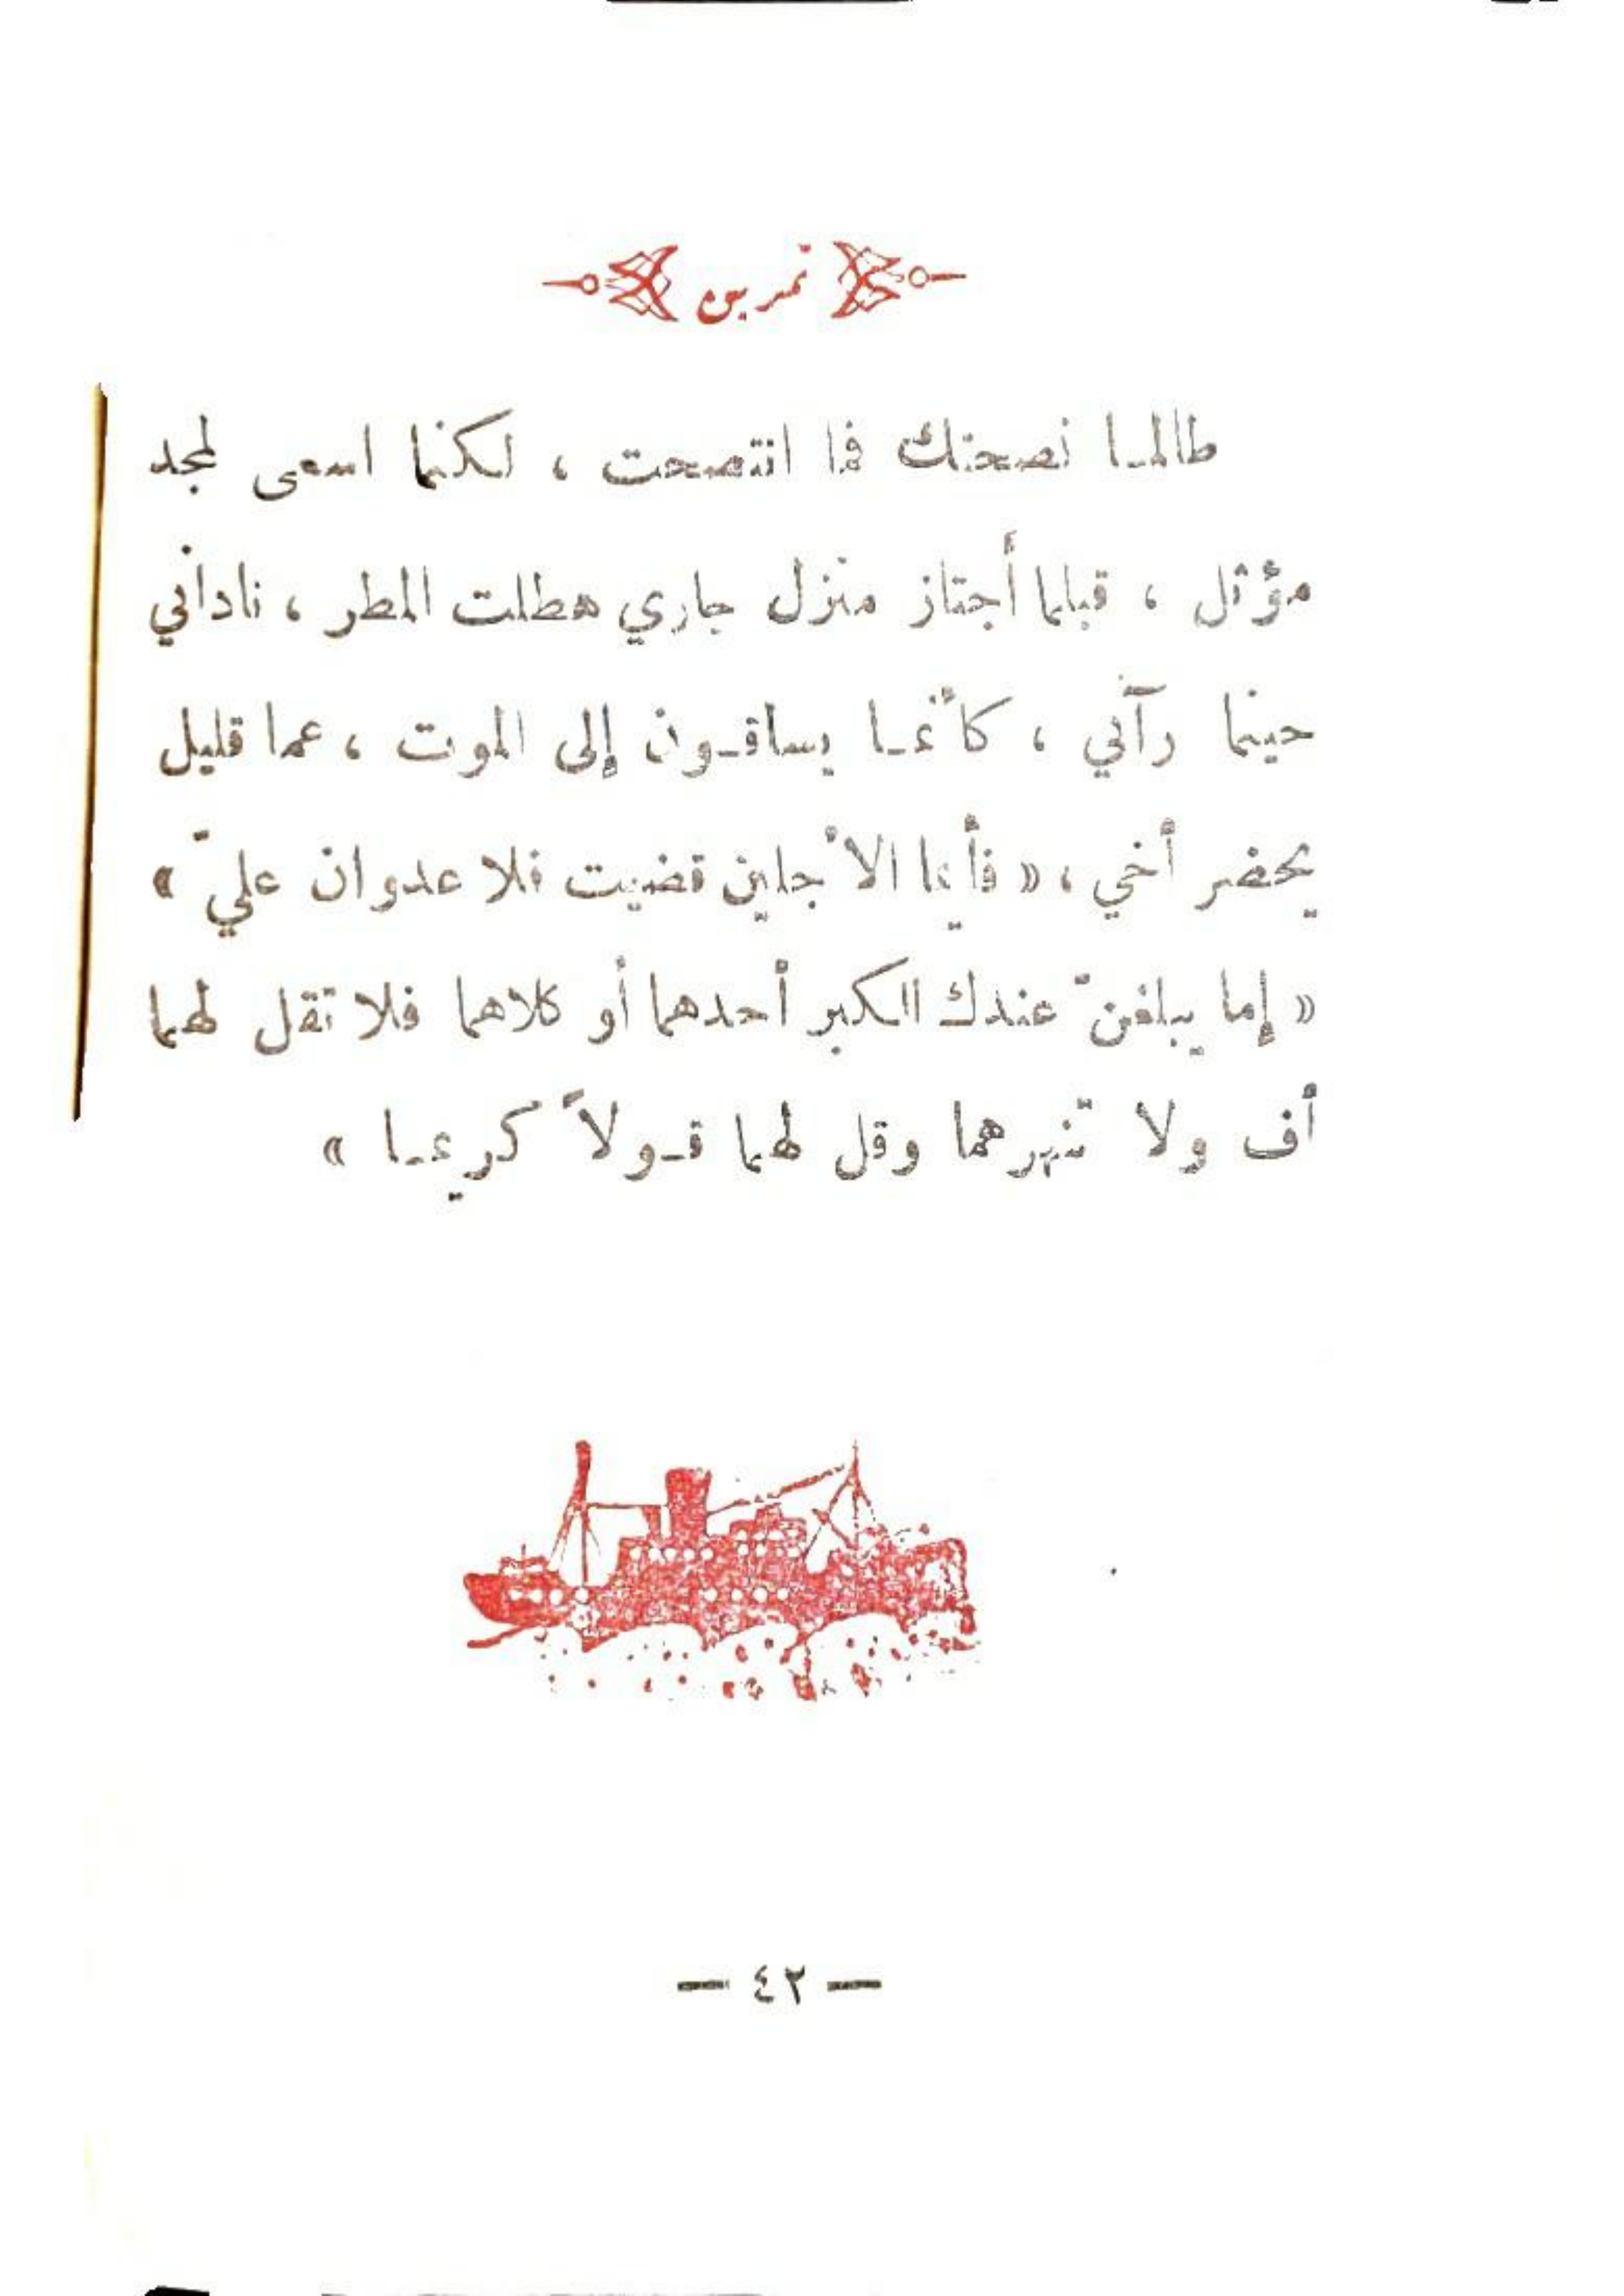 تمرين
طالما نصحتك فما انتصحت ، لكنما اسعى لمجد
مؤثل ، قبلما أجتاز منزل جاري هطلت المطر ، ناداني
حينما رآني ، كأنما يساقون إلى الموت ، عما قليل
يحضر أخي ، « فأيما الأجلين قضيت فلا عدوان عليّ »
« إما يبلغنّ عندك الكبر أحدهما أو كلاهما فلا تقل لهما
أف ولا تنهرهما وقل لهما قولاً كريما »
— ٤٢ —